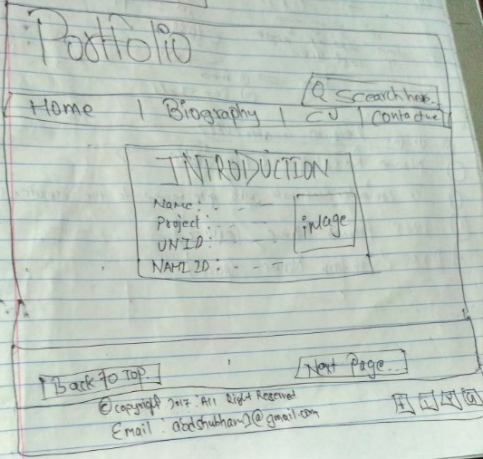 Portfolio
Search here..
Home | Biography | CV | Contact us
INTRODUCTION
Name: - - -
Project:
UNID:
NAMI ID: - - -
image
Back To Top
Next Page...
© copyright 2017. All Right Reserved
Email: